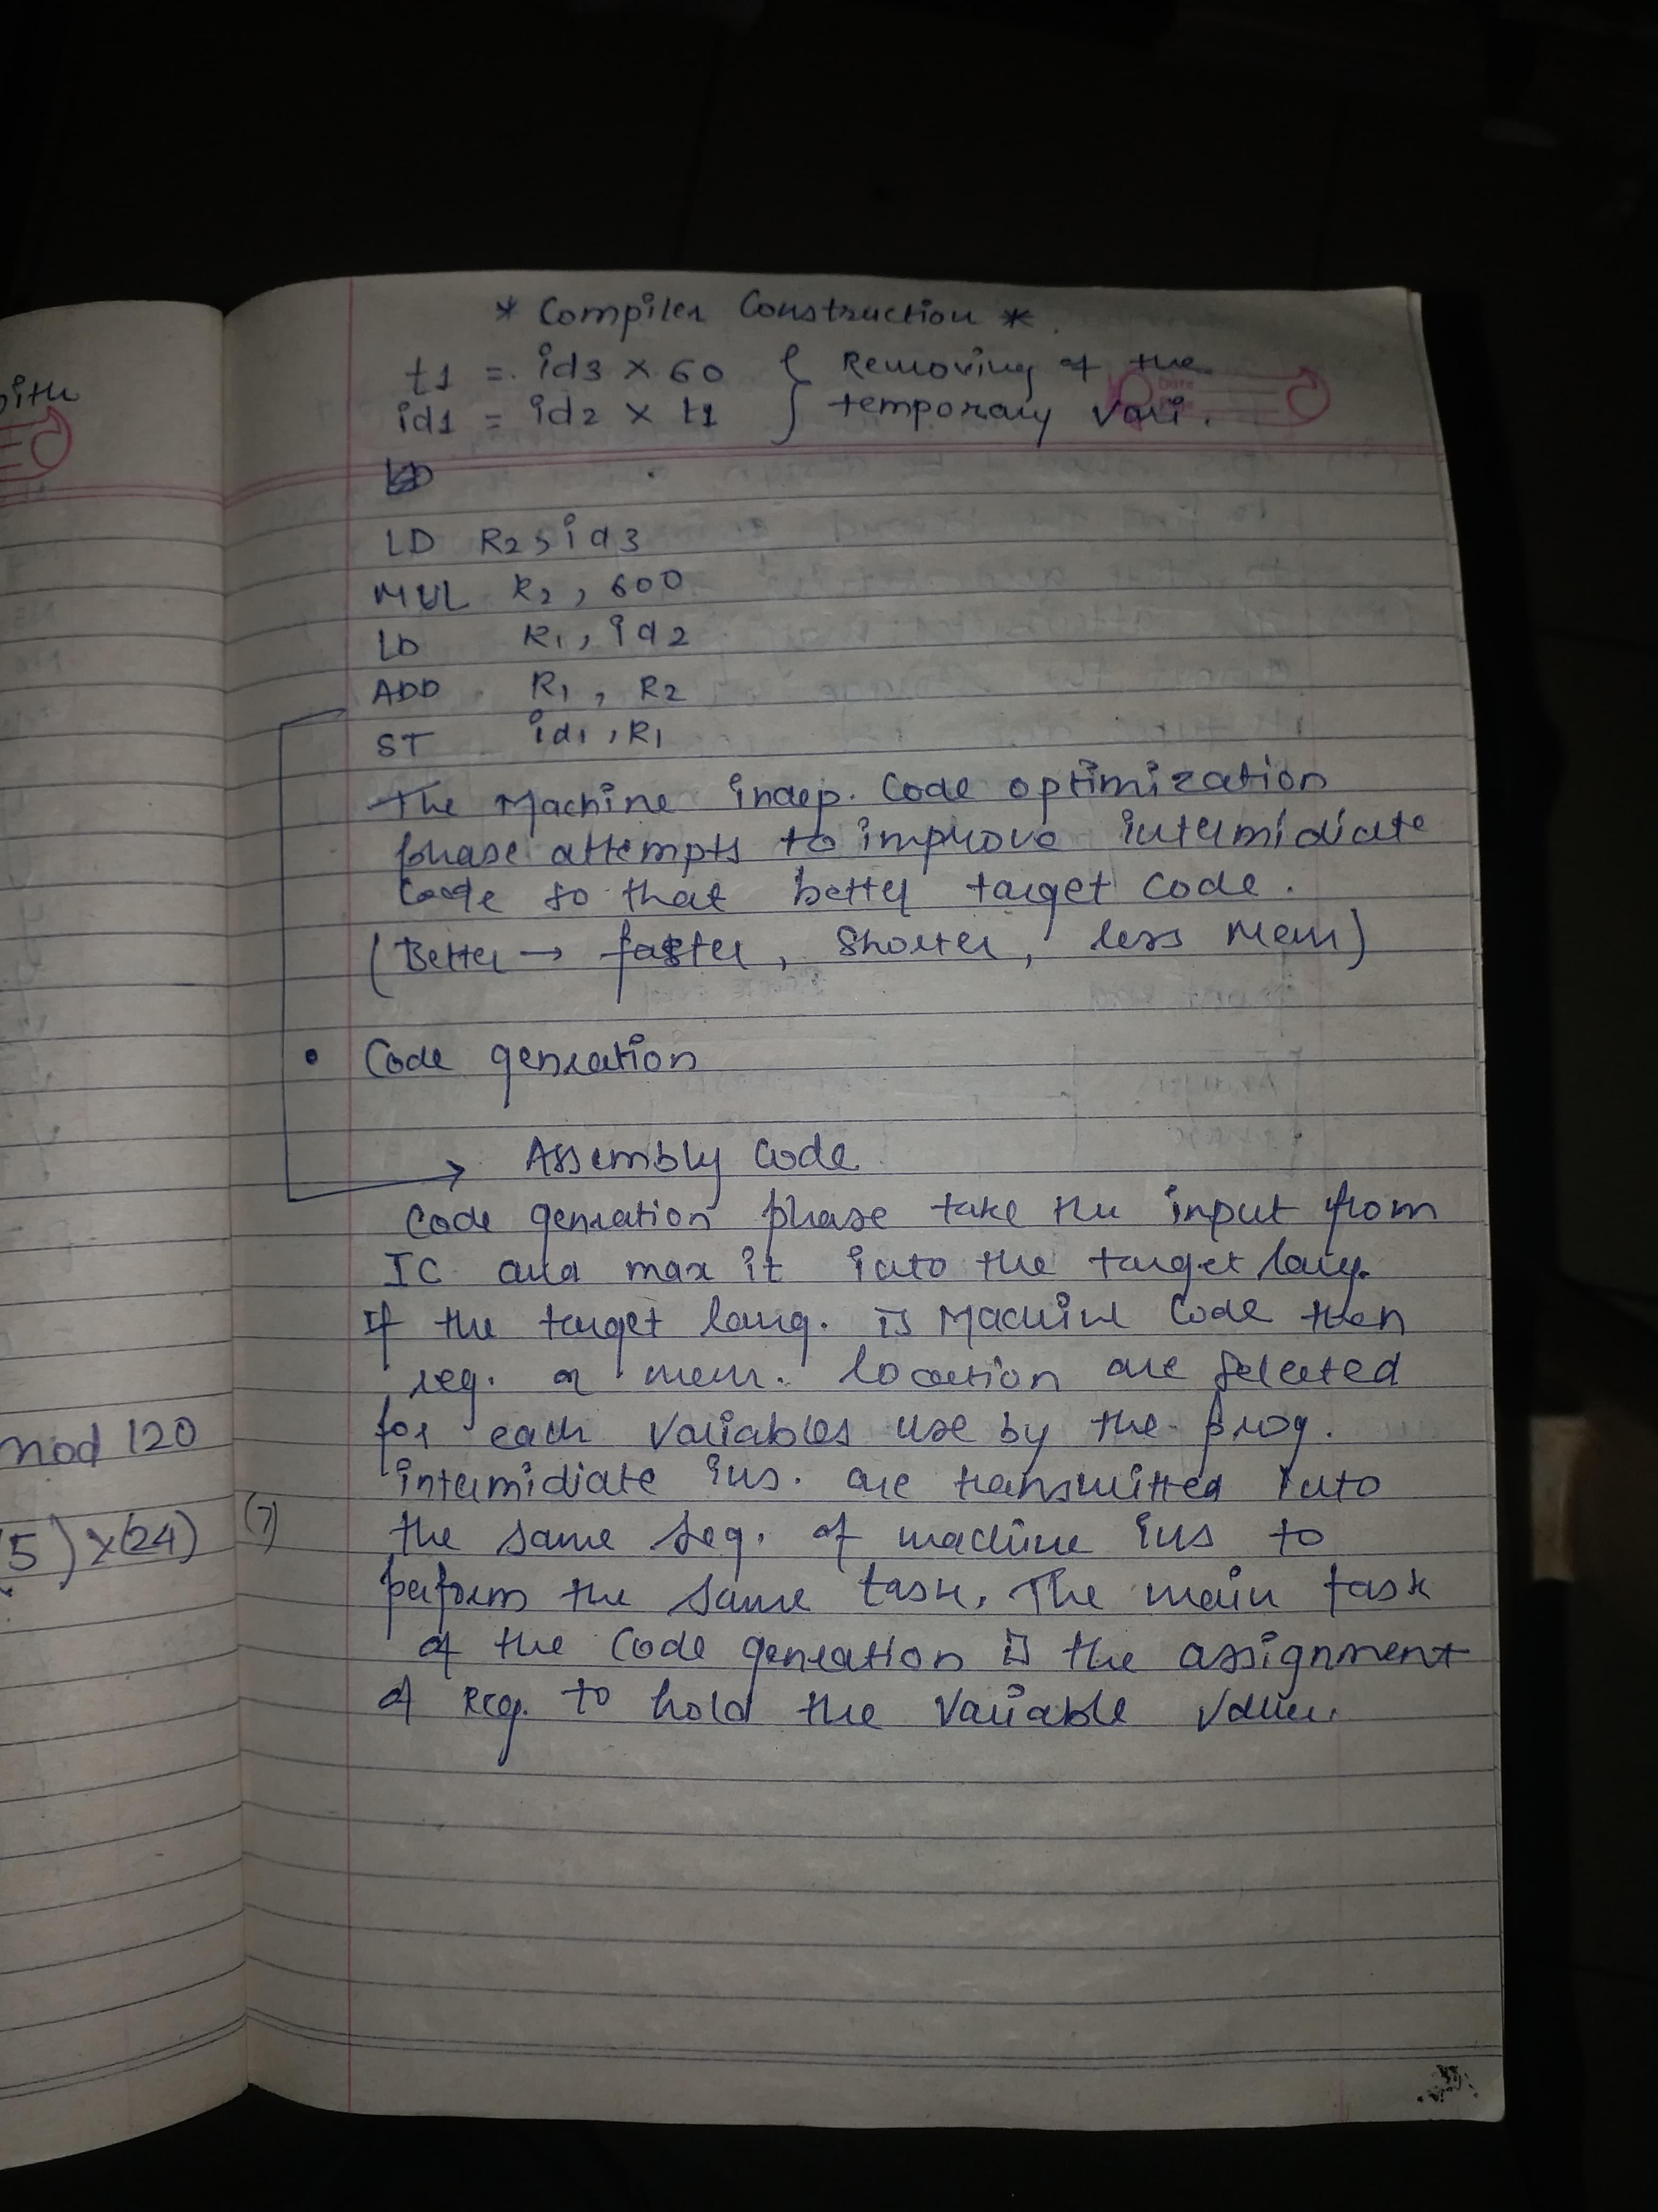 * Compiler Construction *
t1 = id3 × 60 { Removing of the
id1 = id2 × t1 } temporary vari.
LD
LD R2, id3
MUL R2, 600
LD R1, id2
ADD R1, R2
ST id1, R1
The Machine indep. Code optimization
phase attempts to improve intermidiate
code so that better target code.
(Better → faster, Shorter, less Mem)
• Code genration
→ Assembly Code
Code genration phase take the input from
IC and max it into the target lang.
If the target lang. is Machine Code then
reg. or mem. location are selected
for each variables use by the prog.
intermidiate ins. are transmitted into
the same seq. of machine ins to
perform the same task. The main task
of the Code genration is the assignment
of Reg. to hold the variable value.
mod 120
5) × (24)
(7)